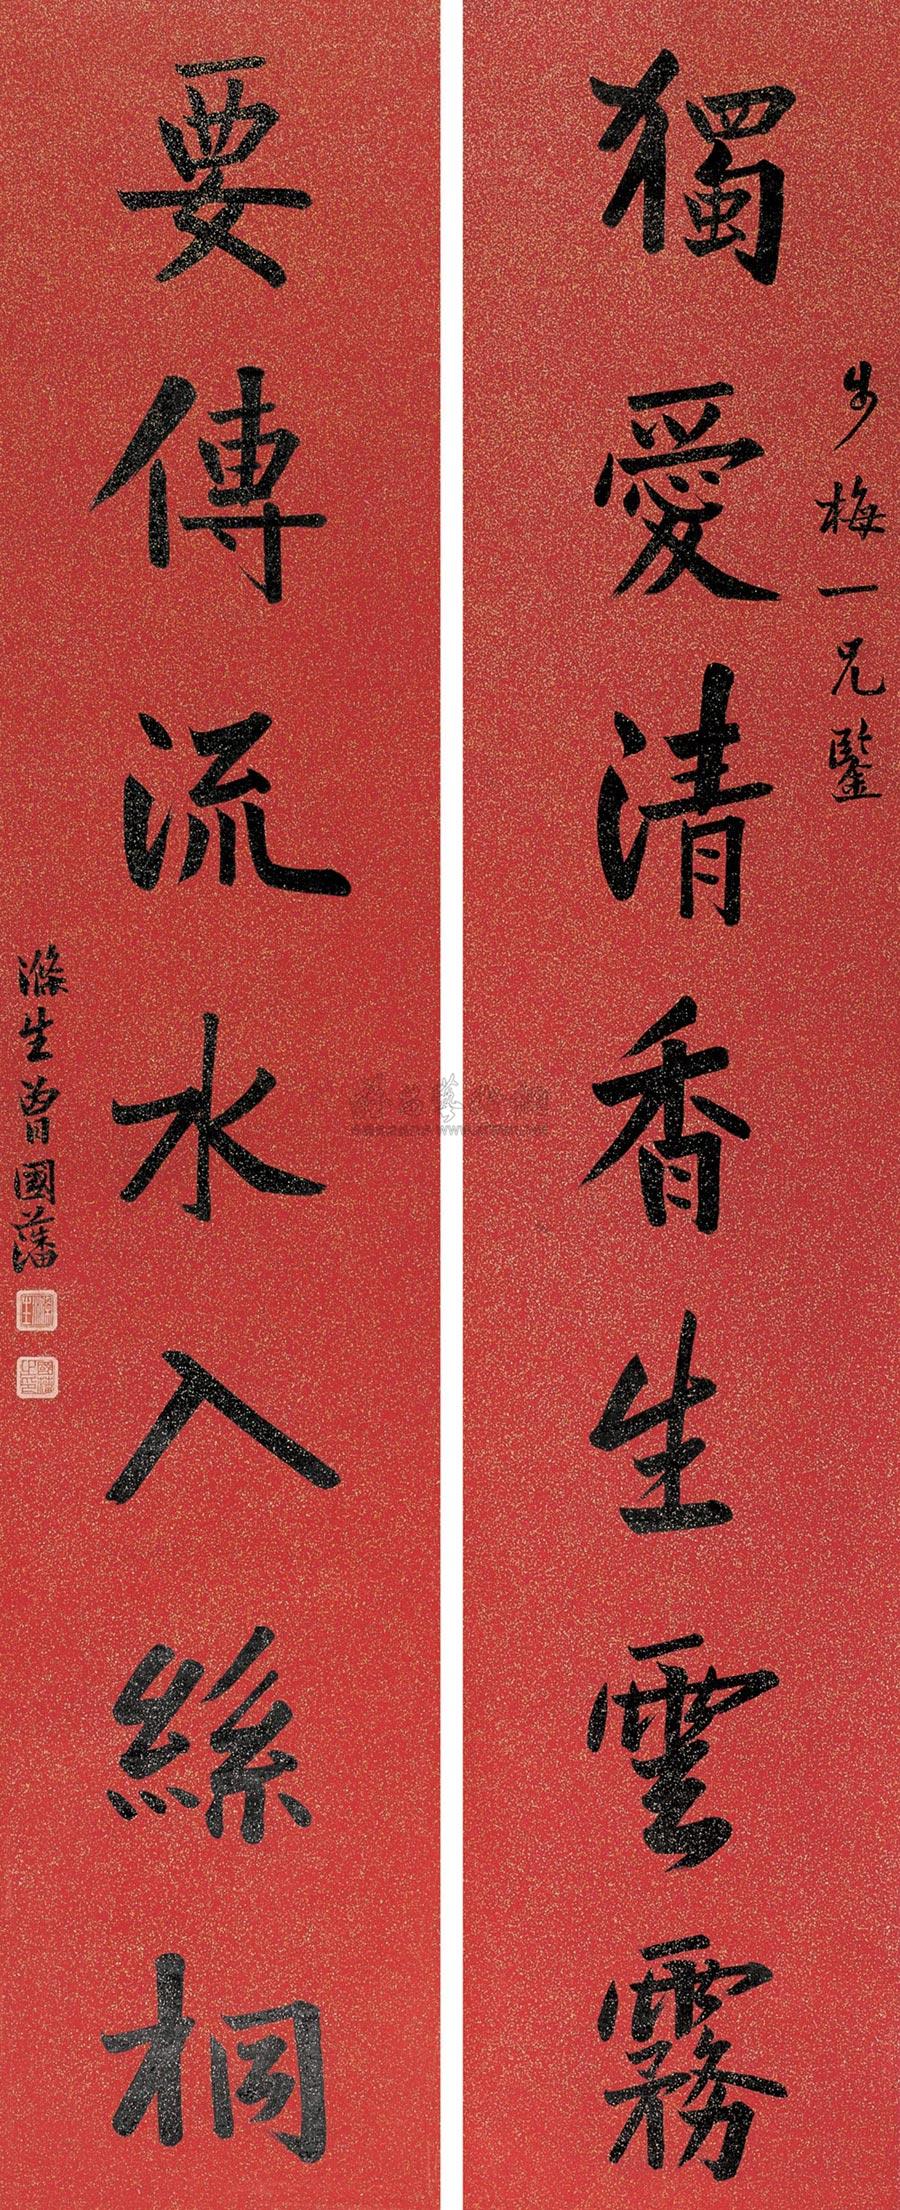 獨愛清香生雲霧
步梅一兄鑒
要傳流水入絲桐
滌生曾國藩